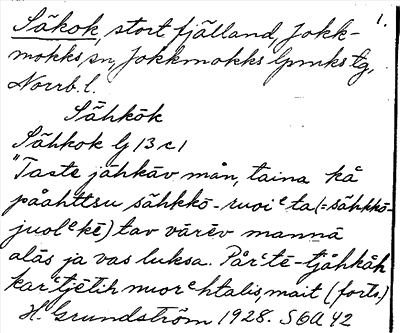 1.
Säkok, stort fjälland, Jokk-
mokks sn, Jokkmokks lpmks tg,
Norrb. l.
Sähkōk
Sähkok lj 13 c 1
"Taste jähkāv mån, taina kå
påahttsu sähkkō-ruoiᵉta (=sähkkō-
juolᵉkē) tav vārēv mannā
alās ja vas luksa. Pårᵉtē-tjåhkåh
karᵉtjētih muorᵉhtalis, mait (forts.)
H. Grundström 1928. S6A 42